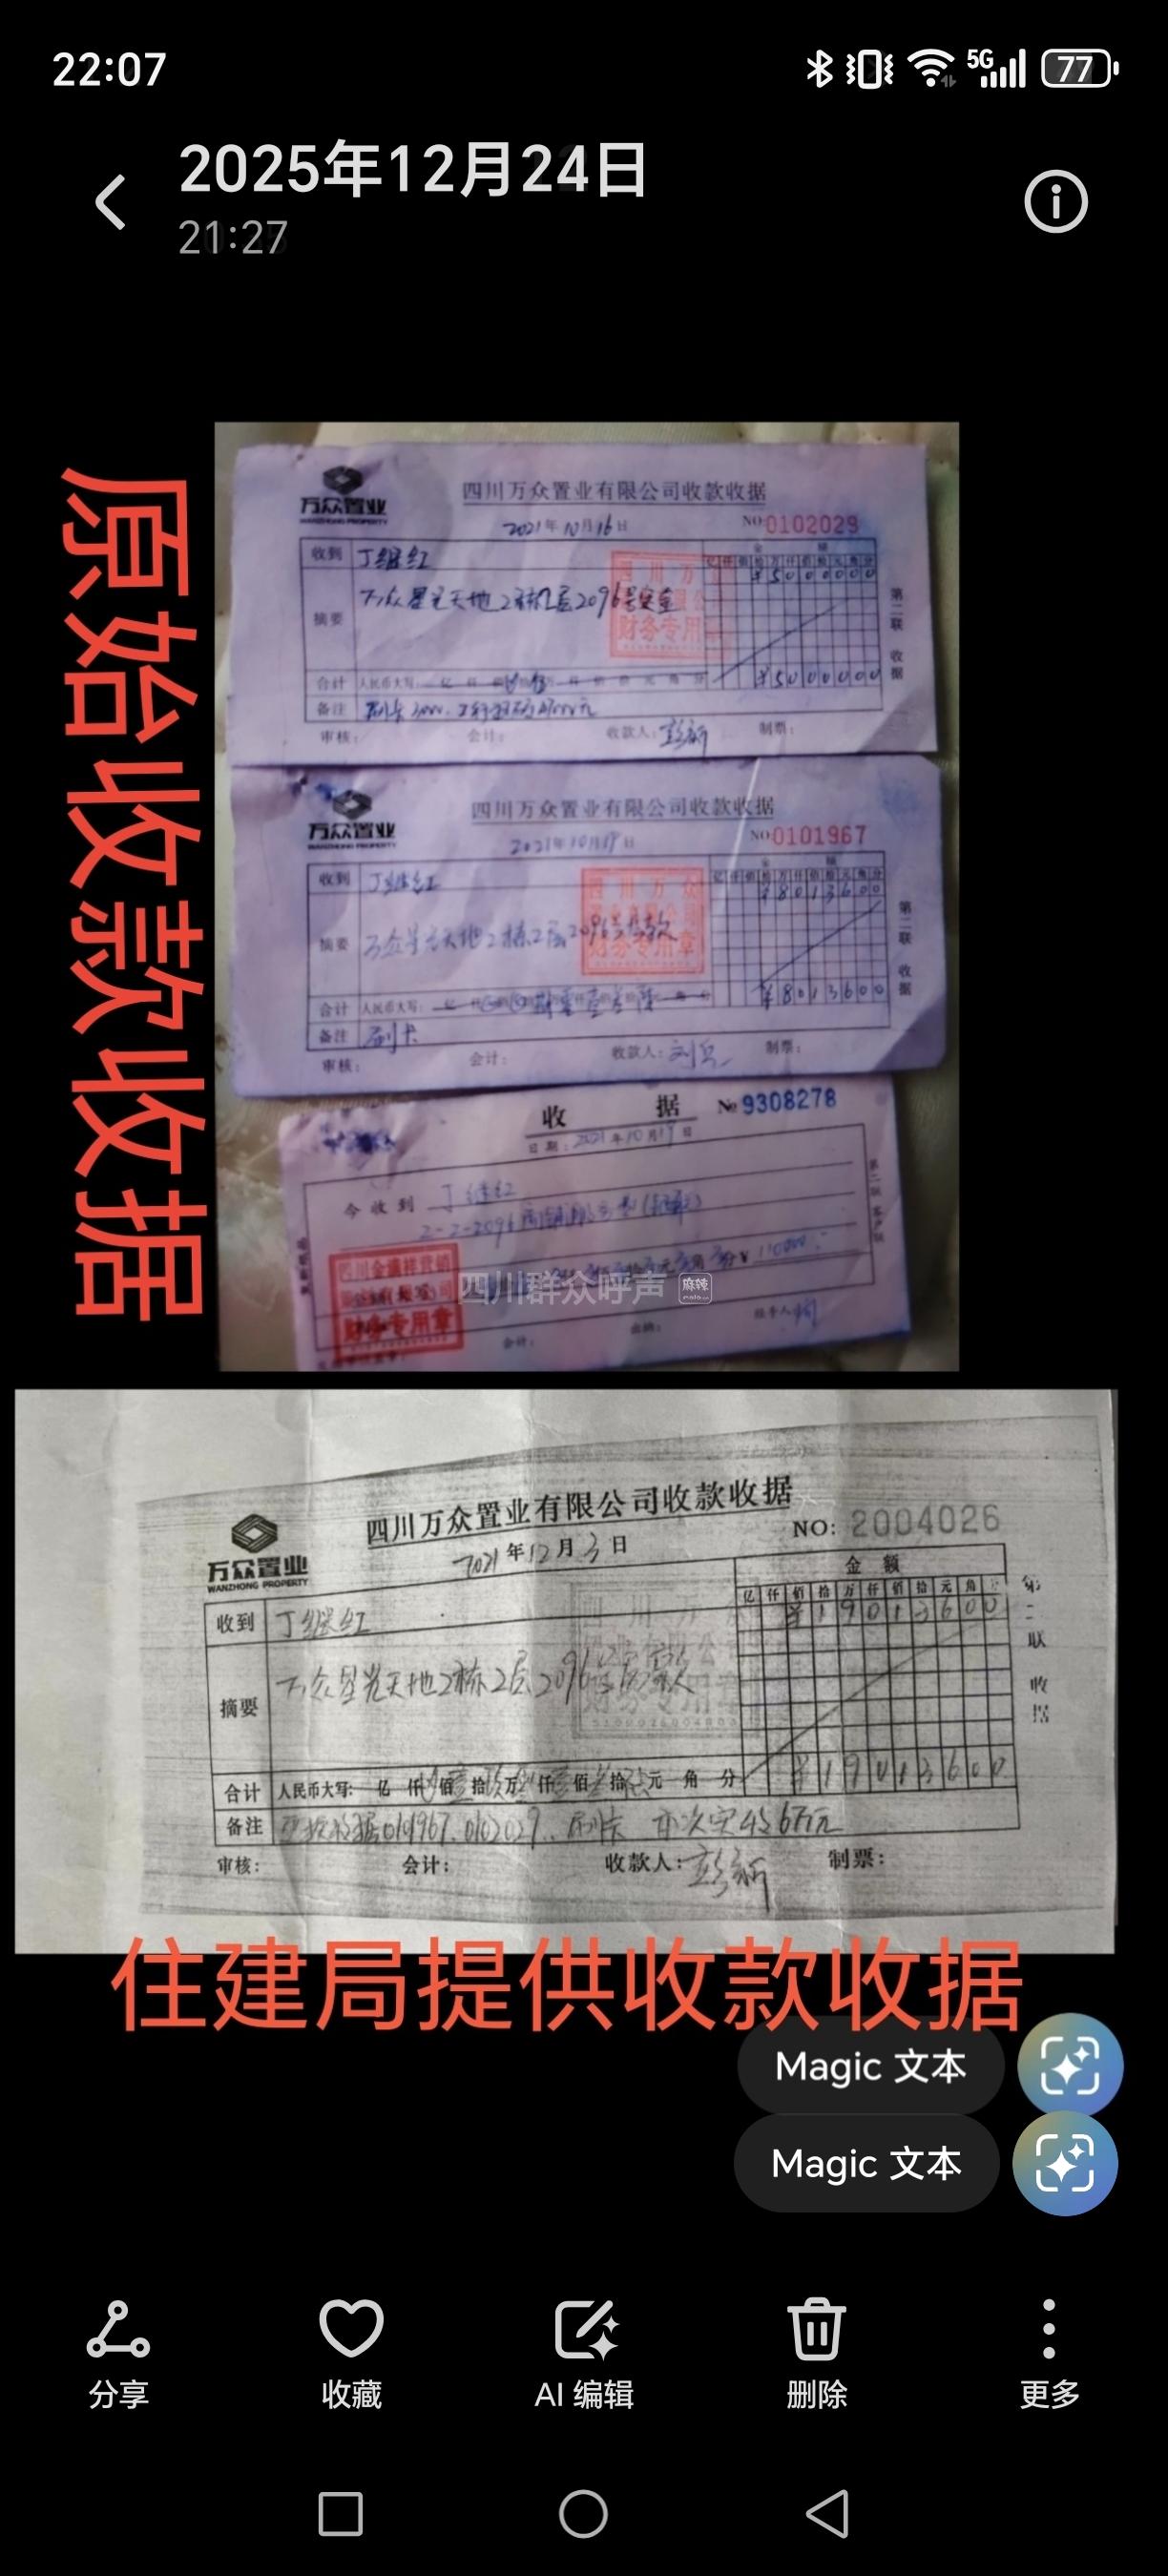 22:07
5G
77
2025年12月24日
21:27
原始收款收据
万众置业
WANZHONG PROPERTY
四川万众置业有限公司收款收据
2021年10月16日
NO 0102029
金额
收到 丁继红
亿仟佰拾万仟佰拾元角分
¥5000000
摘要 万众星光天地2栋2层2096号定金
四川万
财务专用
第二联 收据
合计 人民币大写:
¥5000000
备注
审核: 会计: 收款人: 彭新 制票:
万众置业
WANZHONG PROPERTY
四川万众置业有限公司收款收据
2021年10月17日
NO 0101967
金额
收到 丁继红
亿仟佰拾万仟佰拾元角分
¥8013600
摘要 万众星光天地2栋2层2096号房款
四川万众
财务专用章
第二联 收据
合计 人民币大写:
¥8013600
备注 刷卡
审核: 会计: 收款人: 制票:
收据 № 9308278
日期: 2021年10月17日
今收到 丁继红
2-2-2096
110000.-
财务专用章
会计:
四川群众呼声 麻辣
四川万众置业有限公司收款收据
万众置业
WANZHONG PROPERTY
2021年12月3日
NO: 2004026
金额
亿仟佰拾万仟佰拾元角
收到 丁继红
¥19013600
摘要 万众星光天地2栋2层2096号房款
第二联 收据
合计 人民币大写: 亿 仟 佰壹拾玖万零仟壹佰叁拾陆元 角 分
¥19013600
备注 收据0101967.0102029. 刷卡 本次实收6万元
审核: 会计: 收款人: 彭新 制票:
住建局提供收款收据
Magic 文本
Magic 文本
分享
收藏
AI 编辑
删除
更多